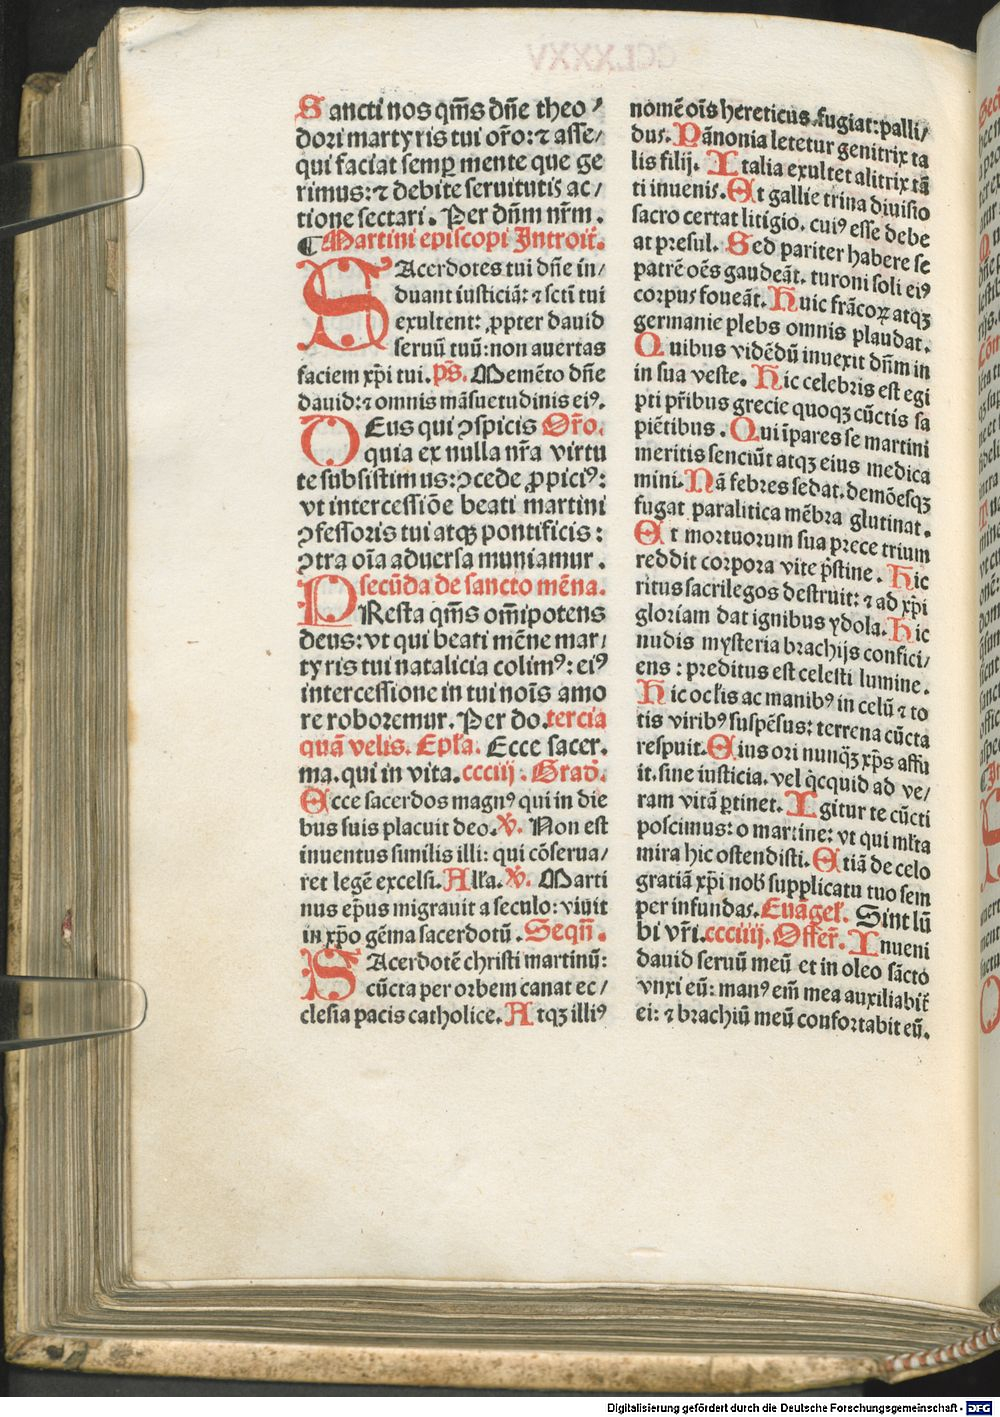 Sancti nos qm̄s dn̄e theo/
dori martyris tui or̄o: ⁊ asse/
qui faciat semꝑ mente que ge
rimus: ⁊ debite seruitutis ac/
tione sectari. Per dn̄m nr̄m.
¶ Martini episcopi Introit̄.
SAcerdotes tui dn̄e in/
duant iusticiā: ⁊ sctī tui
exultent: ꝓpter dauid
seruū tuū: non auertas
faciem xp̄i tui. ps̄. Memēto dn̄e
dauid: ⁊ omnis māsuetudinis eiꝰ.
DEus qui ꝯspicis Or̄o.
quia ex nulla nr̄a virtu
te subsistimus: ꝯcede ꝓpiciꝰ:
vt intercessiōe beati martini
ꝯfessoris tui atqꝫ pontificis:
ꝯtra oīa aduersa muniamur.
secūda de sancto mēna.
PResta qm̄s om̄ipotens
deus: vt qui beati mēne mar/
tyris tui natalicia colimꝰ: eiꝰ
intercessione in tui noīs amo
re roboremur. Per do. tercia
quā velis. Epl̄a. Ecce sacer.
ma. qui in vita. ccciij. Grad̄.
Ecce sacerdos magnꝰ qui in die
bus suis placuit deo. v̄. Non est
inuentus similis illi: qui cōserua/
ret legē excelsi. All̄a. v̄. Marti
nus ep̄us migrauit a seculo: viuit
in xp̄o gēma sacerdotū. Seqn̄.
SAcerdotē christi martinū:
cūcta per orbem canat ec/
clesia pacis catholice. Atqꝫ illiꝰ
nomē oīs hereticus fugiat: palli/
dus. Pānonia letetur genitrix ta
lis filij. Italia exultet alitrix tā
ti inuenis. Et gallie trina diuisio
sacro certat litigio. cuiꝰ esse debe
at presul. Sed pariter habere se
patrē oēs gaudeāt. turoni soli eiꝰ
corpus foueāt. Huic frācoꝝ atqꝫ
germanie plebs omnis plaudat.
Quibus vidēdū inuexit dn̄m in
in sua veste. Hic celebris est egi
pti pr̄ibus grecie quoqꝫ cūctis sa
piētibus. Qui īpares se martini
meritis senciūt atqꝫ eius medica
mini. Nā febres sedat. demōesqꝫ
fugat paralitica mēbra glutinat.
Et mortuorum sua prece trium
reddit corpora vite p̄stine. Hic
ritus sacrilegos destruit: ⁊ ad xp̄i
gloriam dat ignibus ydola. Hic
nudis mysteria brachijs confici/
ens: preditus est celesti lumine.
Hic ocl̄is ac manibꝰ in celū ⁊ to
tis viribꝰ suspēsus: terrena cūcta
respuit. Eius ori nunqꝫ̄ xp̄s affu
it. sine iusticia. vel q̇cquid ad ve/
ram vitā ꝑtinet. Igitur te cūcti
poscimus: o martine: vt qui ml̄ta
mira hic ostendisti. Etiā de celo
gratiā xp̄i nob̄ supplicatu tuo sem
per infundas. Euāgel̄. Sint lū
bi vr̄i. ccciiij. Offer̄. Inueni
dauid seruū meū et in oleo sācto
vnxi eū: manꝰ em̄ mea auxiliabit̄
ei: ⁊ brachiū meū confortabit eū.
Digitalisierung gefördert durch die Deutsche Forschungsgemeinschaft - DFG